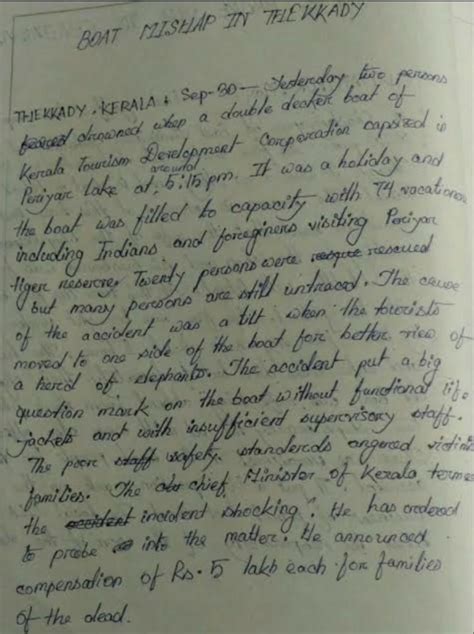 BOAT MISHAP IN THEKKADY
THEKKADY, KERALA : Sep-30 - Yesterday two persons
drowned when a double decker boat of
Kerala Tourism Development Corporation capsized in
Periyar lake at around 5:15 pm. It was a holiday and
the boat was filled to capacity with 74 vacationers
including Indians and foreginers visiting Periyar
tiger reserve. Twenty persons were rescued
but many persons are still untraced. The cause
of the accident was a tilt when the tourists
moved to one side of the boat for better view of
a herd of elephants. The accident put a big
question mark on the boat without functional life
jackets and with insufficient supervisory staff.
The poor safety standerds angered victims
families. The chief Minister of Kerala terme
the incident shocking". He has ordered
to probe into the matter. He announced
compensation of Rs. 5 lakh each for families
of the dead.